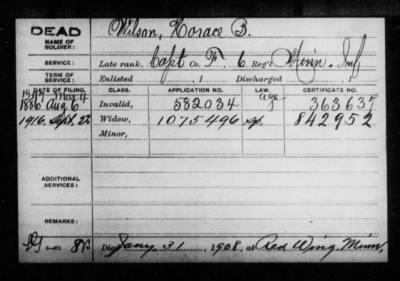 DEAD
NAME OF SOLDIER: Wilson, Horace B.
SERVICE: Late rank, Capt Co. F, 6 Reg't Minn. Inf
TERM OF SERVICE: Enlisted , 1 Discharged , 1
DATE OF FILING. CLASS. APPLICATION NO. LAW. CERTIFICATE NO.
1907 Mar 4 age
1886 Aug 6 Invalid, 582034 363637
1916, Sept. 22 Widow, 1075496 842952
Minor,
ADDITIONAL SERVICES:
REMARKS:
Died Jany 31, 1908, at Red Wing, Minn,